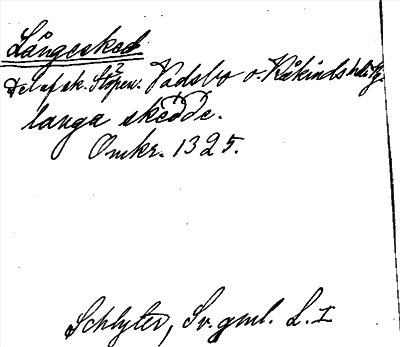 Långesked
Del af sk. Stöpen. Vadsbo o. Kåkinds hd Vg.
langa skedde.
Omkr. 1325.
Schlyter, Sv. gml. L. I